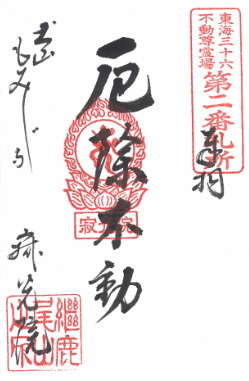 東海三十六
不動尊霊場
第二番札所
奉拝
厄除不動
寂光院
もみじでら
寂光院
継鹿
尾山